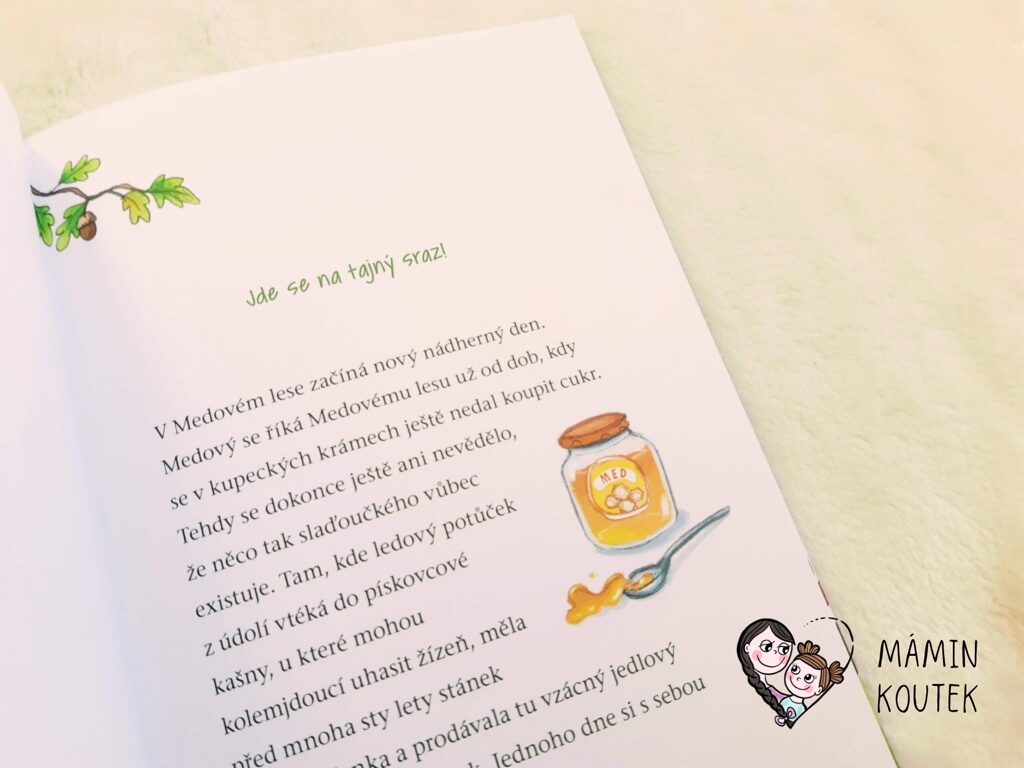 Jde se na tajný sraz!
V Medovém lese začíná nový nádherný den.
Medový se říká Medovému lesu už od dob, kdy
se v kupeckých krámech ještě nedal koupit cukr.
Tehdy se dokonce ještě ani nevědělo,
že něco tak slaďoučkého vůbec
existuje. Tam, kde ledový potůček
z údolí vtéká do pískovcové
kašny, u které mohou
kolemjdoucí uhasit žízeň, měla
před mnoha sty lety stánek
a prodávala tu vzácný jedlový
Jednoho dne si s sebou
MED
MÁMIN
KOUTEK